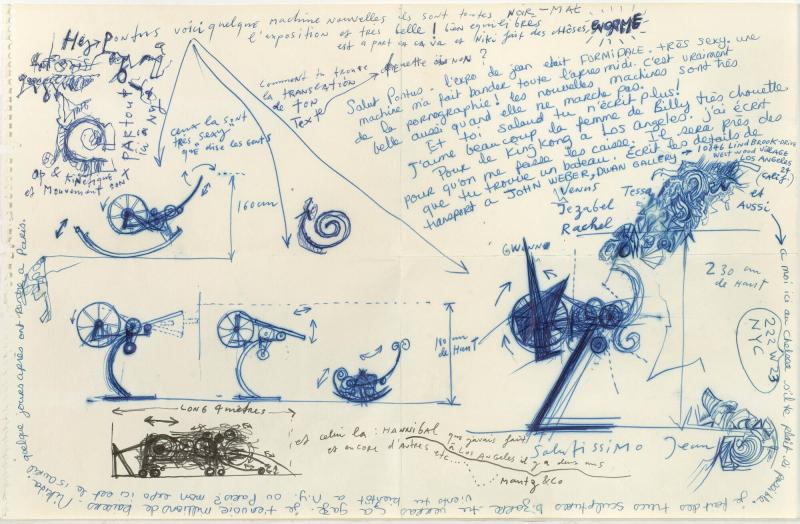 Hey Pontus voici quelque machine nouvelles ils sont toutes NOIR-MAT
l'exposition et très belle! bien equilibrés
est a part en ca va et Niki fait des chôses ENORME
Comment tu trouve
la TRANSLATION
de TON
Texte
?
PARTOUT
ici a
NY
Op & Kinetique
et Mouvement
Ceux la sont
très sexy
que dise les gents
160 cm
Salut Pontus. l'expo de jean etait FORMIDABLE. très sexy, une
machine m'a fait bander toute l'apres midi. c'est vraiment
de la pornographie! les nouvelles machines sont très
belle aussi quand elle ne marche pas.
Et toi salaud tu n'écrit plus!
J'aime beaucoup la femme de Billy très chouette
Pour le King Kong a Los Angeles. j'ai écrit
pour qu'on me fasse les caisse. Il sera près des
que tu trouve un bateau. Ecrit les détails de
transport a JOHN WEBER, DWAN GALLERY
10846 LINDBROOK-DRIVE
WESTWOOD VILLAGE
LOS ANGELES
24
CALIF.
et
AUSSI
a moi ici au Chelsea s'il te plait
222 W 23
NYC
Venus
Jezabel
Rachel
Tessa
GWENNO
230 cm
de Haut
180 cm
de Haut
LONG 4 mètres
et celui la: HANNIBAL que j'avais fait
a Los Angeles il y a deux mois
et encore d'AUTRES etc....
Salutissimo Jean
je fait des trucs sculptures bizarre tu verras ça gaze. je t'envoie millions de baisers
viens tu bientôt a N.Y. ou Paris? mon expo ici est le
quelque jours après ont rentre a Paris.